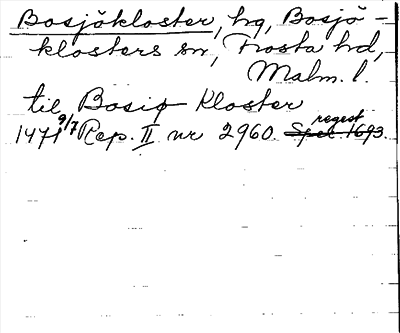 Bosjökloster, hg, Bosjö-
klosters sn, Frosta hd,
Malm. l.
til Bosiø Kloster
1471 9/7 Rep. II nr 2960. regest Spel. 1693.